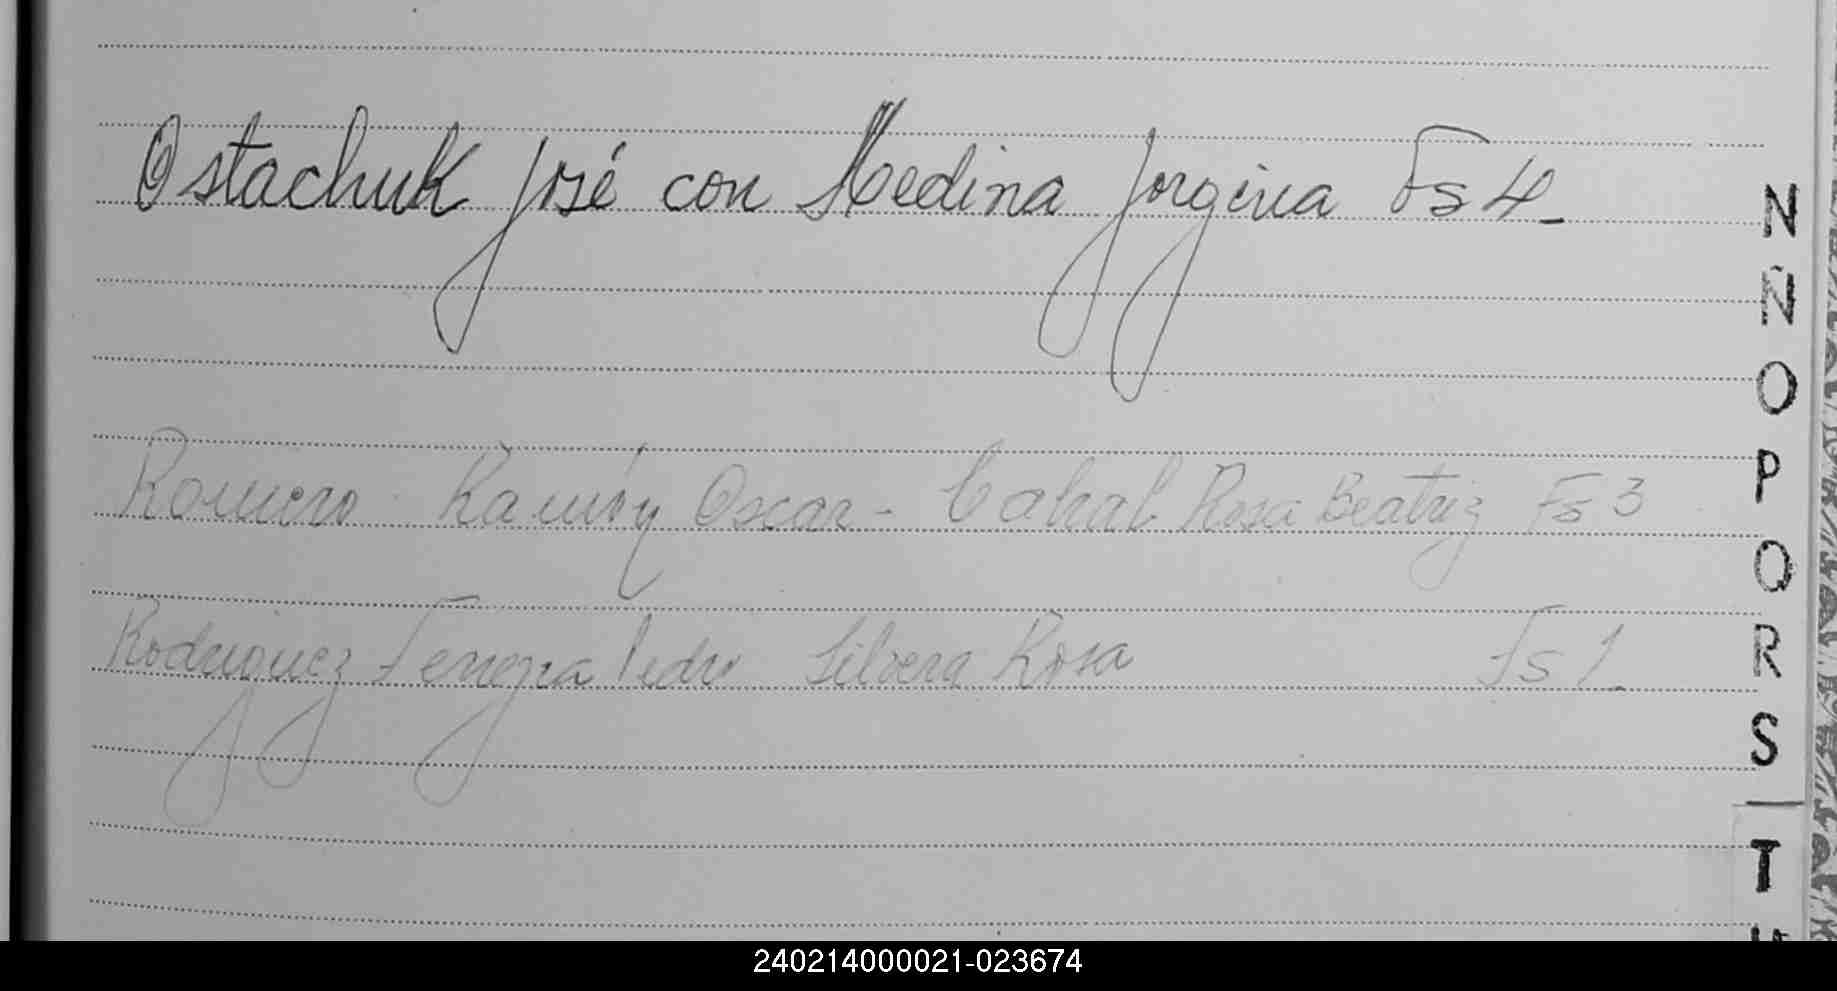 Ostachuk José con Medina Jorgina Fs 4_
Romero Ramón Oscar - Cabral Rosa Beatriz Fs 3
Rodriguez Ferreyra Pedro Silvera Rosa Fs 1_
N
Ñ
O
P
Q
R
S
T
240214000021-023674